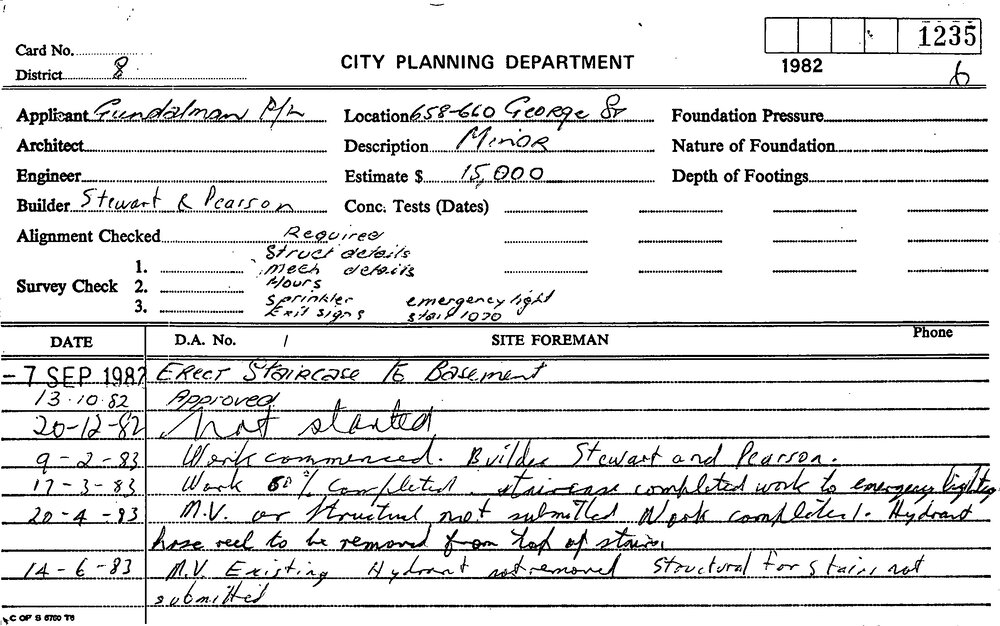 1235
Card No.
CITY PLANNING DEPARTMENT
1982
District 8
6
Applicant Gundalman P/L Location 658-660 George St Foundation Pressure
Architect Description Minor Nature of Foundation
Engineer Estimate $ 15,000 Depth of Footings
Builder Stewart & Pearson Conc. Tests (Dates)
Alignment Checked Required
Struct details
1. mech details
Survey Check 2. Hours
sprinkler emergency light
3. Exit signs stair 1020
DATE D.A. No. / SITE FOREMAN Phone
-7 SEP 1982 Erect Staircase to Basement
13.10.82 Approved
20-12-82 Not started
9-2-83 Work commenced. Builder Stewart and Pearson.
17-3-83 Work % completed. staircase completed work to emergency lighting
20-4-83 M.V. or structural not submitted Work completed. Hydrant
hose reel to be removed from top of stairs
14-6-83 M.V. Existing Hydrant not removed Structural for stairs not
submitted
C OF S 6760 T6